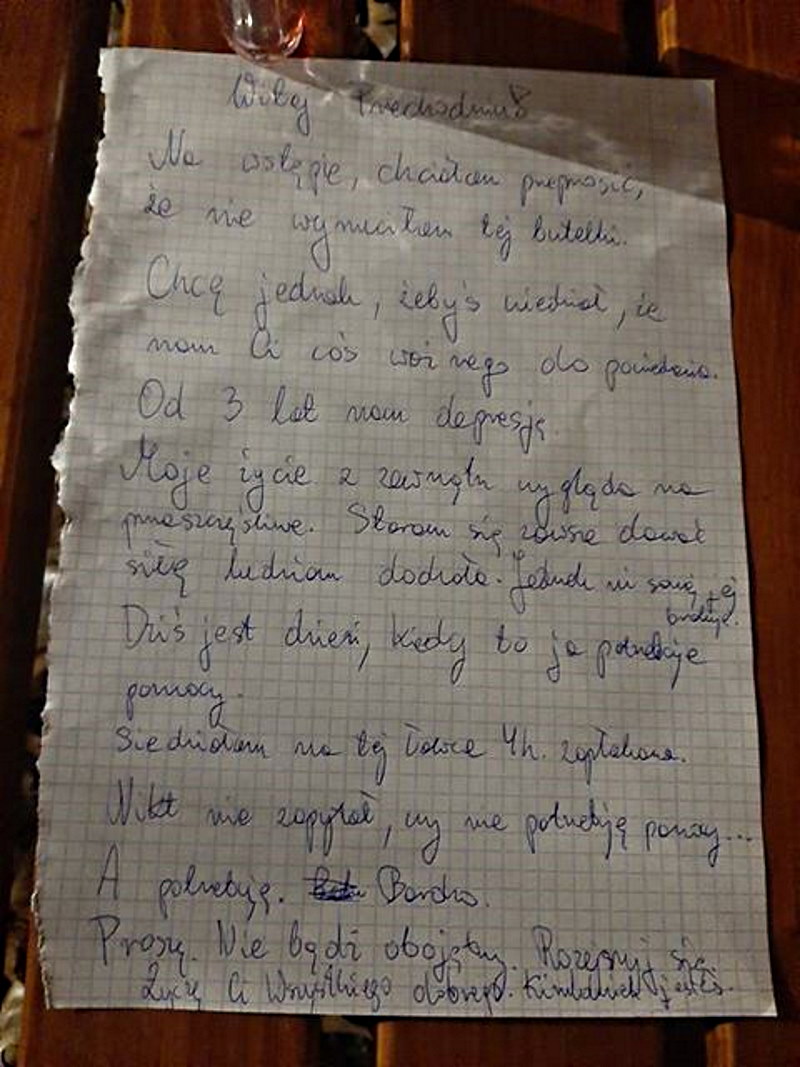 Witaj Przechodniu
Na wstępie, chciałam przeprosić,
że nie wyrzuciłam tej butelki.
Chcę jednak, żebyś wiedział, że
mam Ci coś ważnego do powiedzenia.
Od 3 lat mam depresję.
Moje życie z zewnątrz wygląda na
przeszczęśliwe. Staram się zawsze dawać
siłę ludziom dookoła. Jednak mi samej jej
brakuje.
Dziś jest dzień, kiedy to ja potrzebuje
pomocy.
Siedziałam na tej ławce 4h. zapłakana.
Nikt nie zapytał, czy nie potrzebuję pomocy...
A potrzebuję. Bardzo.
Proszę. Nie bądź obojętny. Rozejrzyj się.
Życzę Ci Wszystkiego dobrego. Kimkolwiek jesteś.